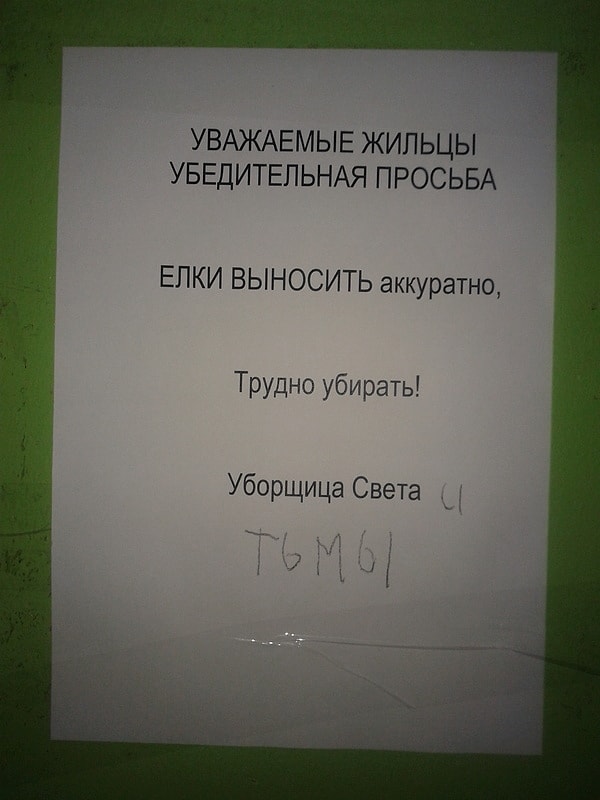 УВАЖАЕМЫЕ ЖИЛЬЦЫ
УБЕДИТЕЛЬНАЯ ПРОСЬБА
ЕЛКИ ВЫНОСИТЬ аккуратно,
Трудно убирать!
Уборщица Света и
ТЬМЫ